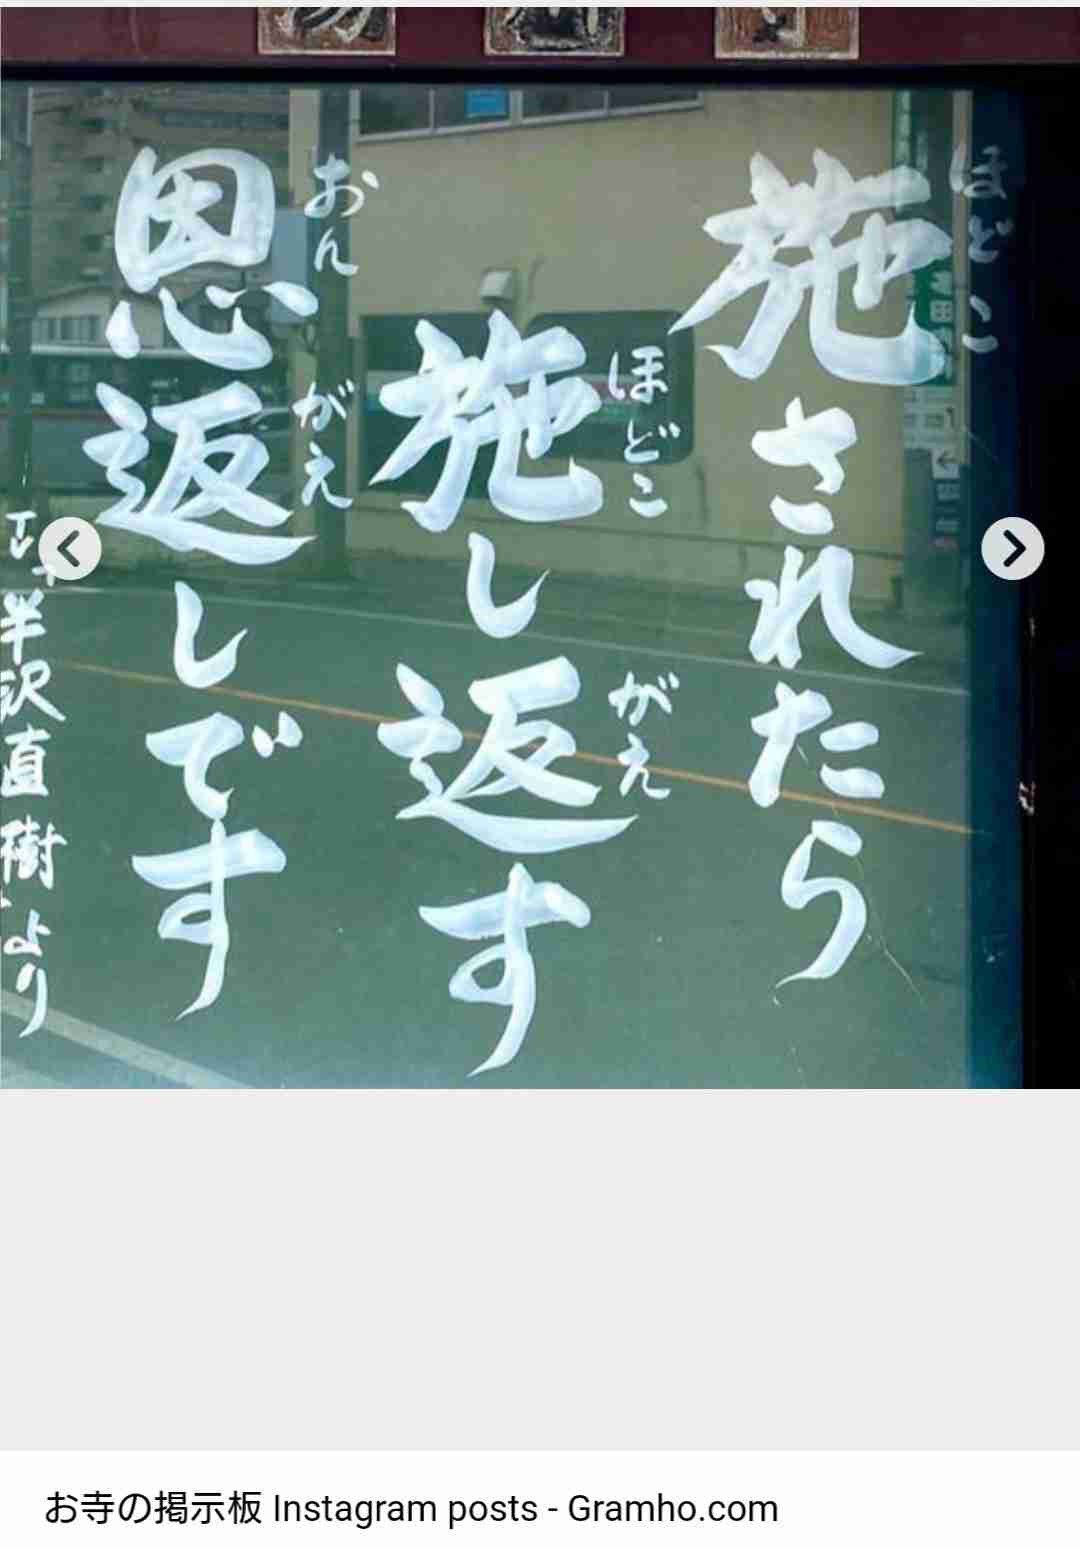 施されたら
ほどこ
施し返す
ほどこ
がえ
恩返しです
おん
がえ
半沢直樹より
お寺の掲示板 Instagram posts - Gramho.com